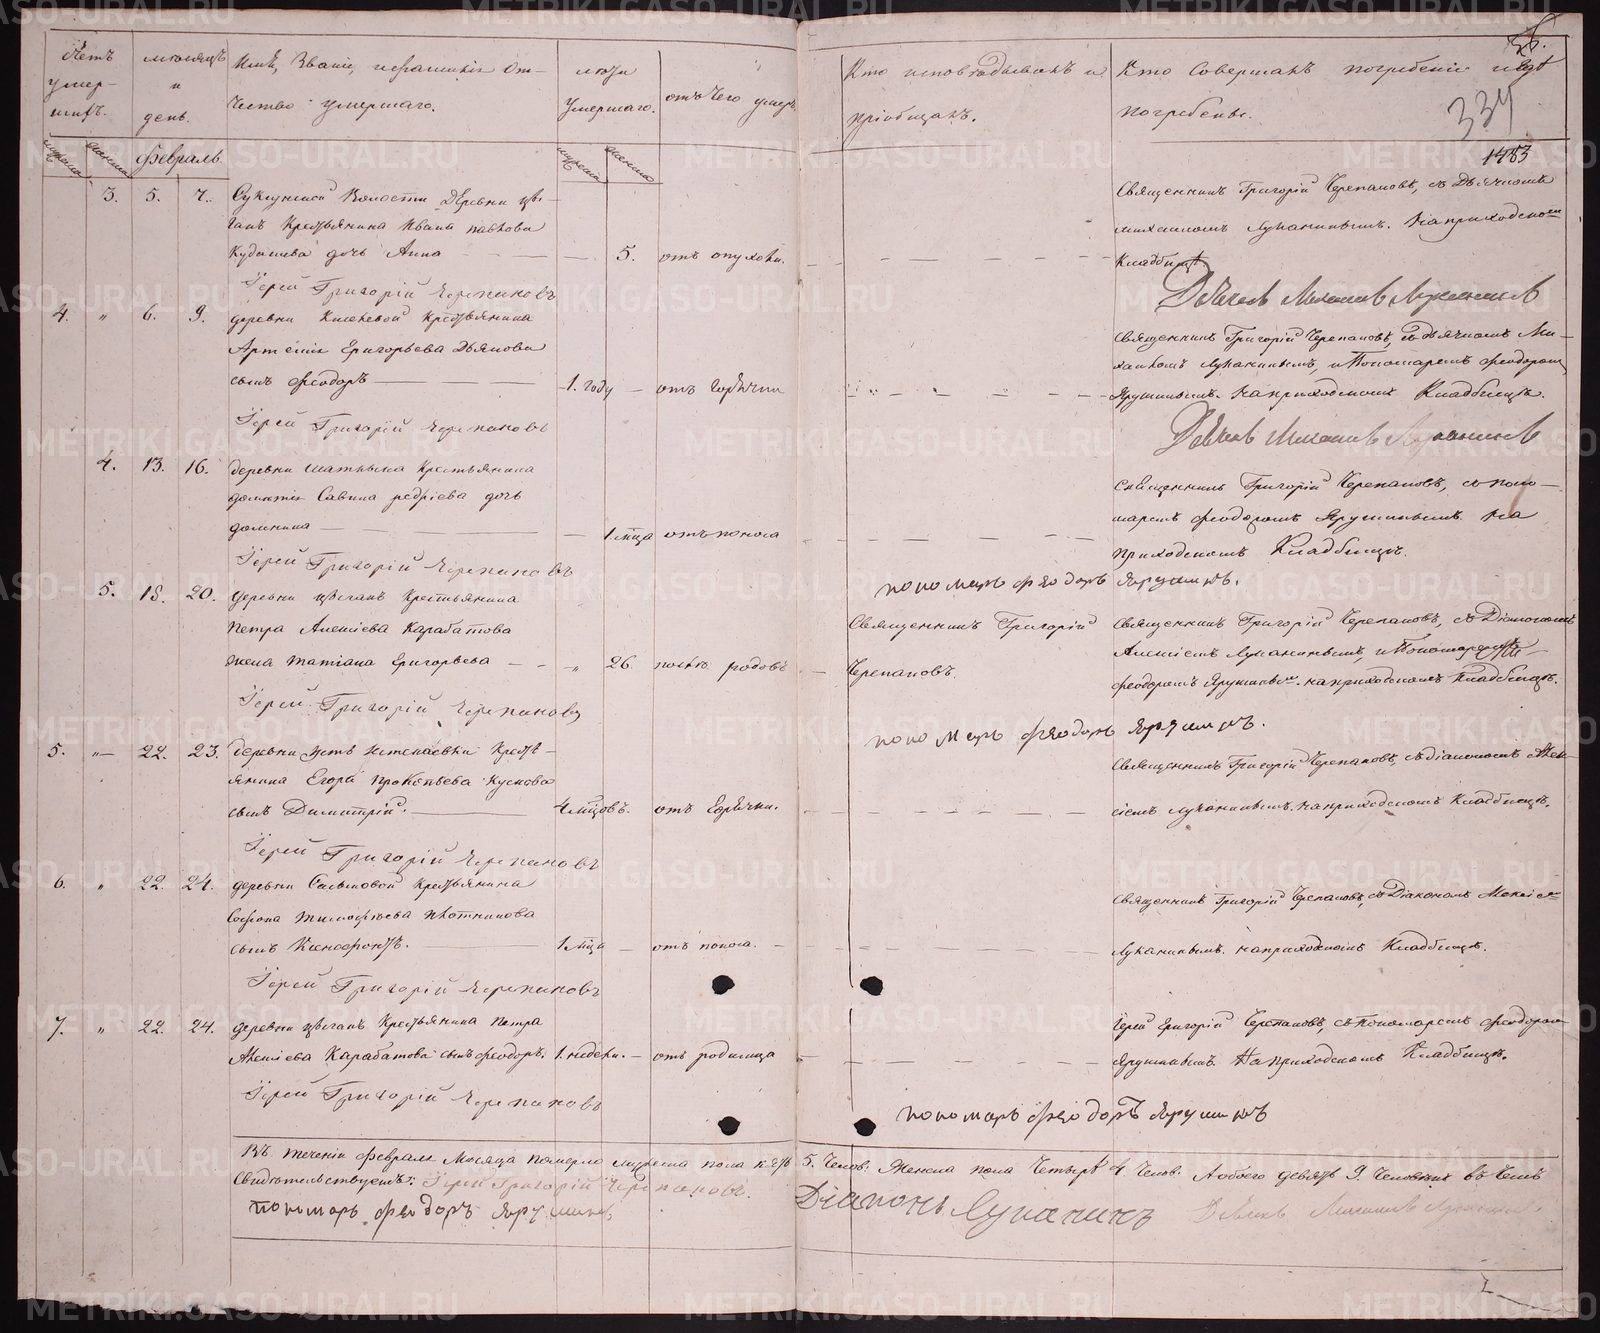 Счетъ умер-шихъ.
мѣсяцъ и день.
Имя, Званіе, и фамилія От-
чество умершаго.
лѣта умершаго.
отъ чего умеръ
Кто исповѣдывалъ и
пріобщалъ.
Кто Совершалъ погребеніе и гдѣ
погребены.
334
1483
мужеска женска Февраль мужеска женска
3. 5. 7. Сукгунской Волости Деревни
Крестьянина Ивана Павлова
дочь Анна 5. отъ опухоли.
Священникъ Григорій Черепановъ, съ Дьячкомъ
Михаиломъ Луканинымъ. На приходскомъ
Кладбищѣ
Іерей Григорій Черепановъ
Дьячекъ Михаилъ Луканинъ
4. " 6. 9. деревни Крестьянина
Артемія Григорьева Дьякова
сынъ Феодоръ 1. году отъ горячки
Священникъ Григорій Черепановъ, съ Дьячкомъ Ми-
хаиломъ Луканинымъ, и Пономаремъ Феодоромъ
Ярушинымъ. на приходскомъ Кладбищѣ.
Іерей Григорій Черепановъ
Дьячекъ Михаилъ Луканинъ
4. 13. 16. деревни Крестьянина
Савина дочь
1 мца отъ поноса
Священникъ Григорій Черепановъ, съ поно-
маремъ Феодоромъ Ярушинымъ на
приходскомъ Кладбищѣ.
Іерей Григорій Черепановъ
пономарь Феодоръ Ярушинъ.
5. 18. 20. деревни Крестьянина
Петра Алексіева Карабатова
жена Татіана Григорьева " 26. послѣ родовъ
Священникъ Григорій
Черепановъ.
Священникъ Григорій Черепановъ, съ Діакономъ
Алексіемъ Луканинымъ, и Пономаремъ
Феодоромъ Ярушинымъ. на приходскомъ Кладбищѣ.
Іерей Григорій Черепановъ
пономарь Феодоръ Ярушинъ.
5. " 22. 23. деревни Усть Кресть-
янина Егора Прокопьева Кускова
сынъ Димитрій. 4 мцовъ. отъ Горячки.
Священникъ Григорій Черепановъ, съ діакономъ Алек-
сіемъ Луканинымъ. на приходскомъ Кладбищѣ.
Іерей Григорій Черепановъ
6. " 22. 24. деревни Крестьянина
Софона Тимофѣева Плотникова
сынъ Ксенофонтъ. 1 мца отъ поноса.
Священникъ Григорій Черепановъ, съ Діакономъ Алексіемъ
Луканинымъ. на приходскомъ Кладбищѣ.
Іерей Григорій Черепановъ
7. " 22. 24. деревни Крестьянина Петра
Алексіева Карабатова сынъ Феодоръ. 1. недели. отъ родимца
Іерей Григорій Черепановъ, съ пономаремъ Феодоромъ
Ярушинымъ. На приходскомъ Кладбищѣ.
Іерей Григорій Черепановъ
пономарь Феодоръ Ярушинъ
Въ теченіи Февраля Мѣсяца померло мужеска пола пять 5. Челов: Женска пола Четыре 4 Челов: А обоего девять 9. Человѣкъ въ чемъ
Свидѣтельствуемъ: Іерей Григорій Черепановъ.
пономарь Феодоръ Ярушинъ
Діаконъ Луканинъ
Дьячекъ Михаилъ Луканинъ
METRIKI.GASO-URAL.RU